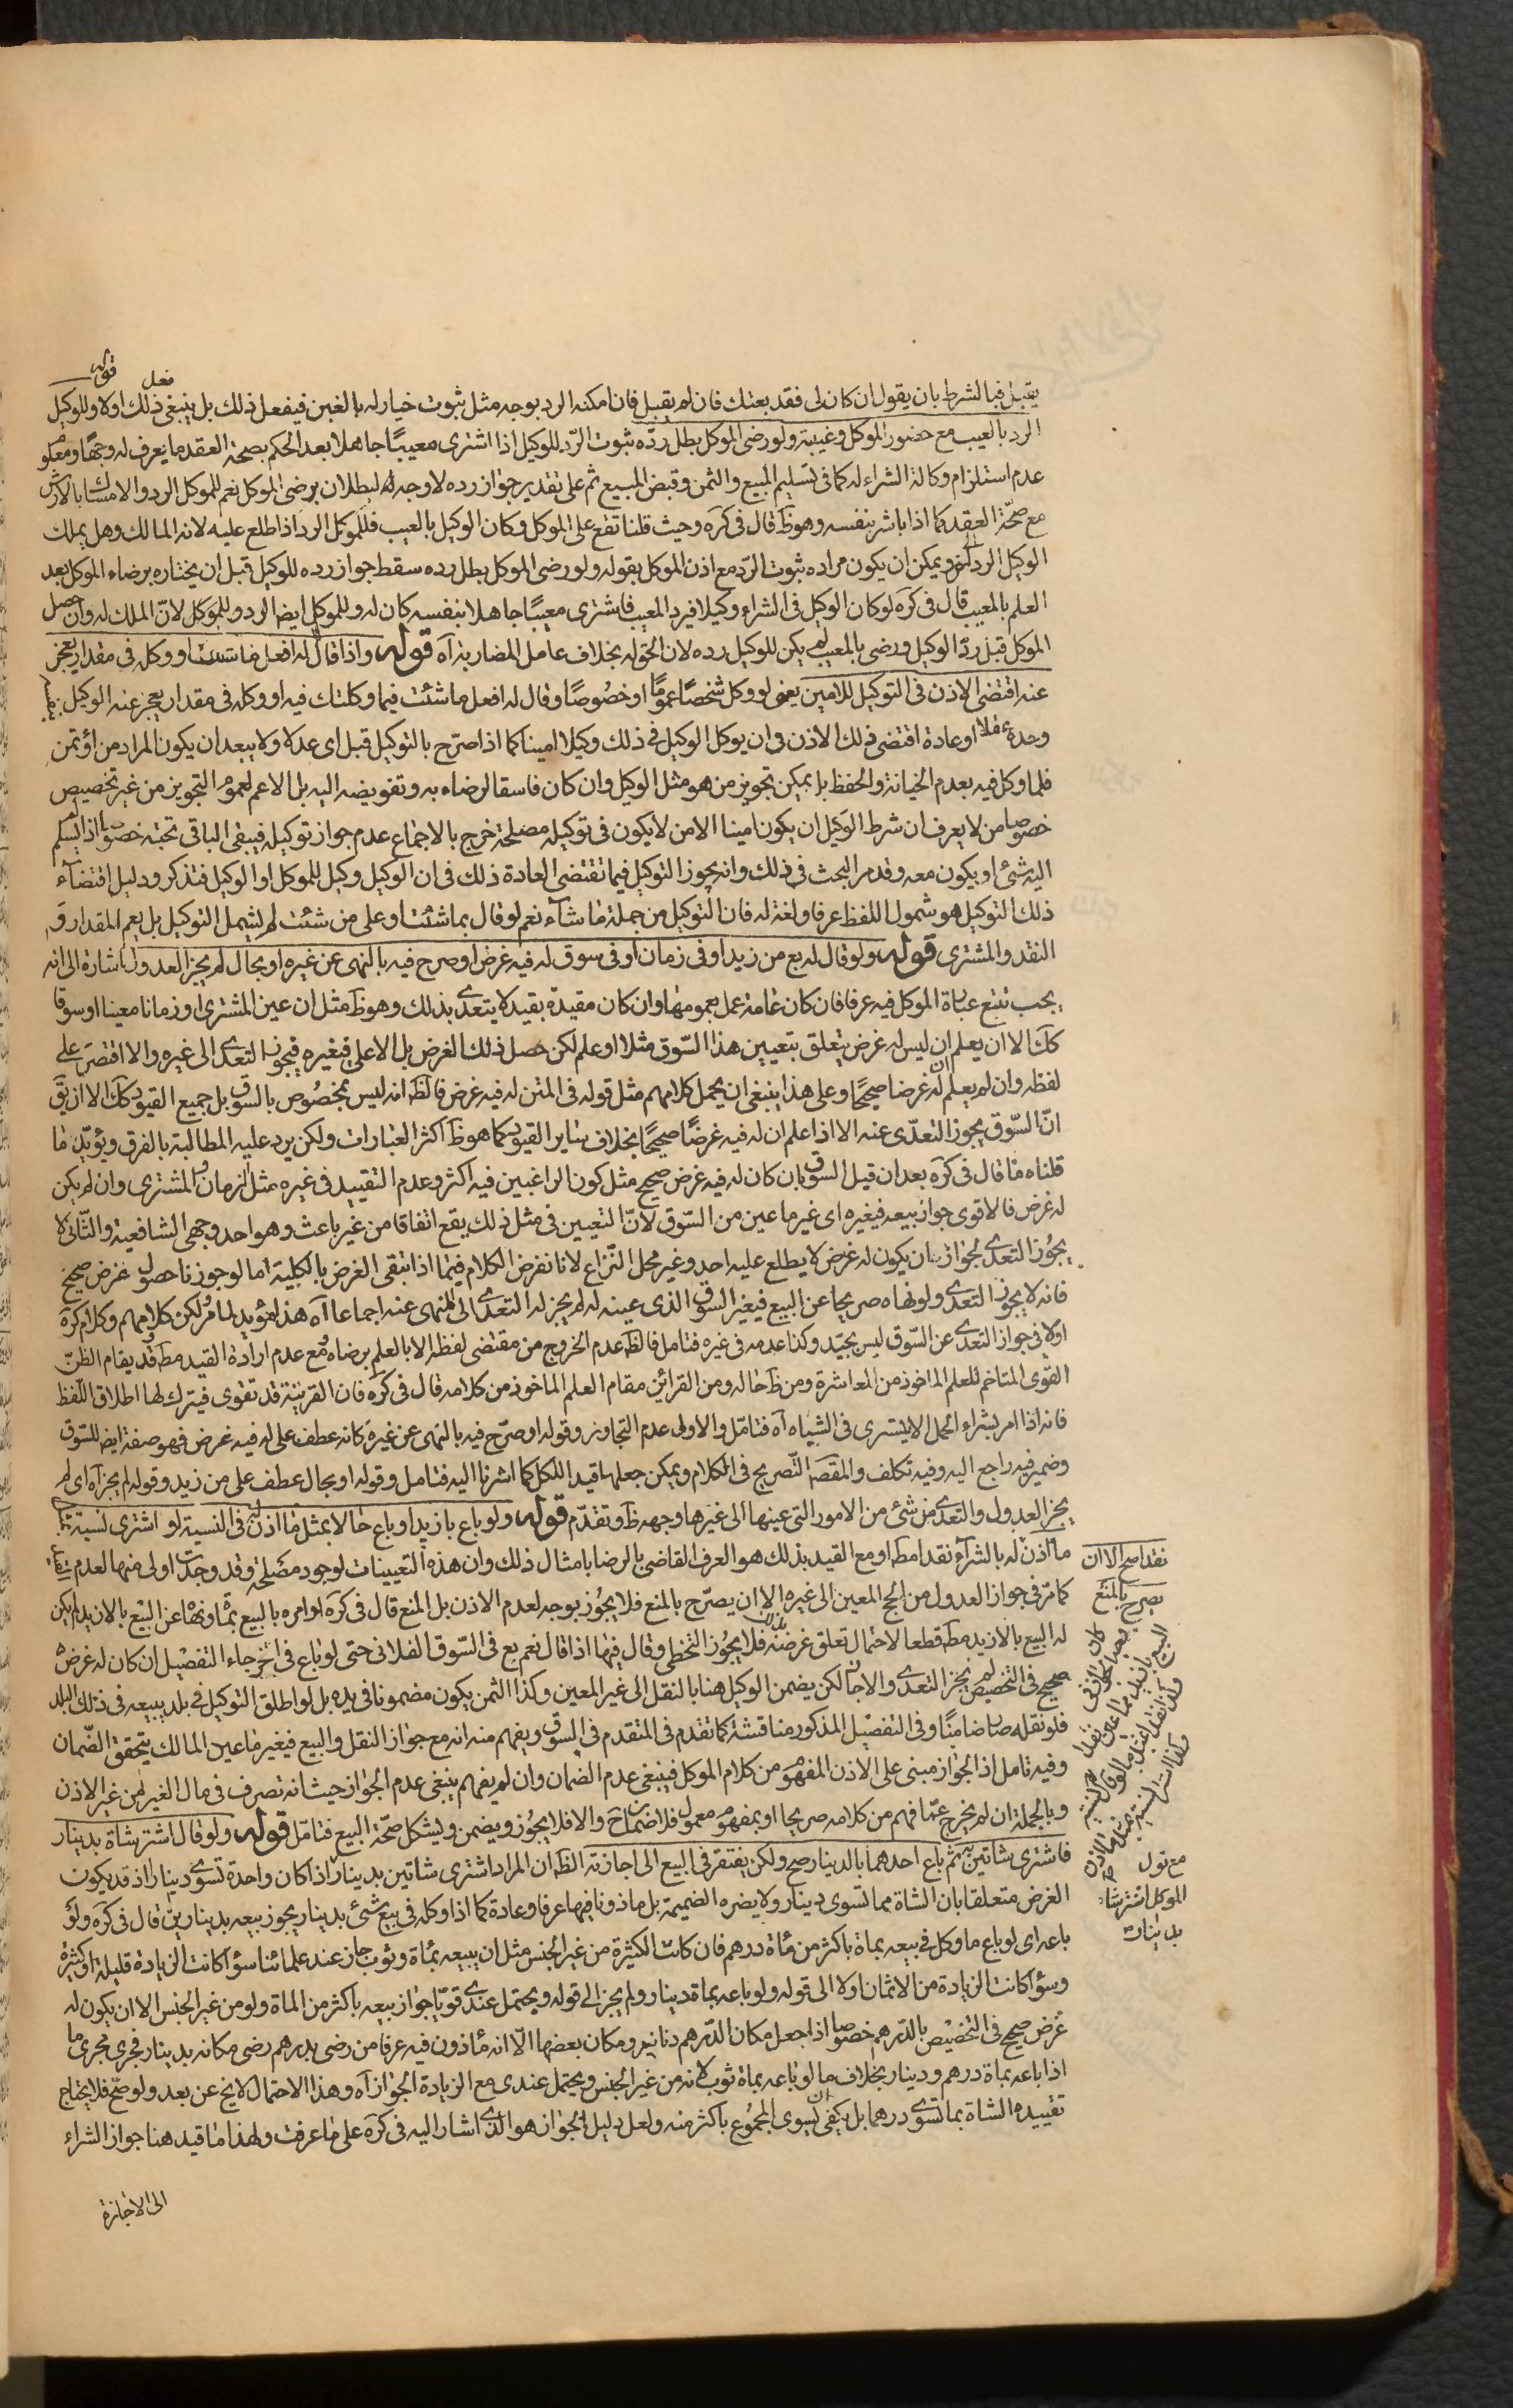 يقبل فبالشرط بان يقول ان كان لى فقد بعتك فان لم يقبل فان امكنه الرد بوجه مثل ثبوت خيار له بالغبن فيفعل ذلك بل ينبغى فعل ذلك اولا قوله وللوكيل
الرد بالعيب مع حضور الموكل وغيبته ولو رضى الموكل بطل رده ثبوت الرّد للوكيل اذا اشترى معيبًا جاهلا بعد الحكم بصحة العقد ما يعرف له وجهًا
عدم استلزام وكالة الشراء له كما فى تسليم المبيع والثمن وقبض المبيع ثم على تقدير جواز رده لا وجه له لبطلان برضى الموكل نعم للموكل الرد والامساك بالارش
مع صحّة العقد كما اذا باشر بنفسه وهو ظَ قال فى كره وحيث قلنا تقع على الموكل وكان الوكيل بالعيب فللموكل الرد اذا اطلع عليه لانه المالك وهل يملك
الوكيل الرد الخ ويمكن ان يكون مراده ثبوت الرّد مع اذن الموكل بقوله ولو رضى الموكل بطل رده سقط جواز رده للوكيل قبل ان يختاره برضاء الموكل بعد
العلم بالمعيب قال فى كره لو كان الوكيل فى الشراء وكيلا فى رد المعيب فاشترى معيبًا جاهلا بنفسه كان له وللموكل ايضا الرد وللموكل لانّ الملك له وان حصل
الموكل قبل ردّ الوكيل ورضى بالمعيب لم يكن للوكيل رده لان الحق له بخلاف عامل المضاربة اه قوله واذا قال له افعل ما شئت او وكله فى مقدار يعجز
عنه اقتضى الاذن فى التوكيل للامين يعنى لو وكل شخصًا عمومًا او خصوصًا وقال له افعل ما شئت فيما وكلتك فيه او وكله فى مقدار يعجز عنه الوكيل
وحده عقلا او عادة اقتضى ذلك الاذن فى ان يوكل الوكيل فى ذلك وكيلا امينا كما اذا صرّح بالتوكيل قبل اى عدلا ولا يبعد ان يكون المراد من اؤتمن
فلما وكل فيه بعدم الخيانة والحفظ بل يمكن تجويز من هو مثل الوكيل وان كان فاسقا لرضاء به وتفويضه اليه بل الاعم لعموم التجويز من غير تخصيص
خصوصا من لا يعرف ان شرط الوكيل ان يكون امينا الا من لا يكون فى توكيله مصلحة خرج بالاجماع عدم جواز توكيله فيبقى الباقى تحته خصوصا اذا لم يسلم
اليه شئ او يكون معه وقد مر البحث فى ذلك وانه يجوز التوكيل فيما تقتضى العادة ذلك فى ان الوكيل وكيل للموكل او الوكيل فتذكر ودليل اقتضآء
ذلك التوكيل هو شمول اللفظ عرفا ولغة له فان التوكيل من جملة ما شآء نعم لو قال بما شئت او على من شئت لم يشمل التوكيل بل يعم المقدار و
النقد والمشترى قوله ولو قال له بع من زيد او فى زمان او فى سوق له فيه غرض او صرح فيه بالنهى عن غيره او بحال لم يجز العدول اشارة الى انه
يجب تتبع عبارة الموكل فيه عرفا فان كان عامة عمل بعمومها وان كان مقيدة بقيد لا يتعدى بذلك وهو ظَ مثل ان عين المشترى او زمانا معينا او سوقا
كك الا ان يعلم ان ليس له غرض يتعلق بتعيين هذا السّوق مثلا او علم لكن حصل ذلك الغرض بل الاعلى فى غيره فيجوز التعدى الى غيره والا اقتصر على
لفظه وان لم يعلم ان له غرضا صحيحًا وعلى هذا ينبغى ان يحمل كلامهم مثل قوله فى المتن له فيه غرض فالظَ انه ليس بمخصوص بالسّوق بل جميع القيود كك الا ان يق
انّ السّوق يجوز التعدّى عنه الا اذا علم ان له فيه غرضًا صحيحًا بخلاف ساير القيود كما هو ظَ اكثر العبارات ولكن يرد عليه المطالبة بالفرق ويؤيد ما
قلناه ما قال فى كره بعد ان قيل السوق بان كان له فيه غرض صحيح مثل كون الراغبين فيه اكثر وعدم التقييد فى غيره مثل الزمان والمشترى وان لم يكن
له غرض فالاقوى جواز بيعه فى غيره اى غير ما عين من السّوق لانّ التعيين فى مثل ذلك يقع اتفاقا من غير باعث وهو احد وجهى الشافعية والثانى لا
يجوز التعدى لجواز ان يكون له غرض لا يطلع عليه احد وغير محل النّزاع لانا نفرض الكلام فيما اذا انتفى الغرض بالكلية اما لو جوزنا حصول غرض صحيح
فانه لا يجوز التعدى ولو نهاه صريحا عن البيع فى غير السوق الذى عينه له لم يجز له التعدى الى المنهى عنه اجماعا اه هذا مؤيد لما مر لكن كلامهم وكلام كره
اولا فى جواز التعدى عن السّوق ليس بجيّد وكذا عدمه فى غيره فتامل فالظَ عدم الخروج من مقتضى لفظه الا بالعلم برضاه مع عدم ارادة القيد مطَ وقد يقام الظنّ
القوى المتاخم للعلم الماخوذ من المعاشرة ومن ظَ حاله ومن القرائن مقام العلم الماخوذ من كلامه قال فى كره فان القرينة قد تقوى فيترك لها اطلاق اللفظ
فانه اذا امر بشراء الجمد لا يشترى فى الشتاء اه فتامّل والاولى عدم التجاوز وقوله او صرّح فيه بالنهى عن غيره كانه عطف على له فيه غرض فهو صفة ايضا للسّوق
وضمير فيه راجع اليه وفيه تكلف والمقصَ التّصريح فى الكلام ويمكن جعلها قيدا للكل كما اشرنا اليه فتامل وقوله او بحال عطف على من زيد وقوله لم يجز اه اى لم
يجز العدول والتعدى من شئ من الامور التى عينها الى غيرها وجهه ظَ وتقدّم قوله ولو باع بازيد او باع حالا بمثل ما اذن له فى النسية او اشترى نسية بمثل
ما اذن له بالشرآء نقدا مطَ او مع القيد بذلك هو العرف القاضى بالرضا بامثال ذلك وان هذه التعيينات لوجود مصلحة وقد وجدت اولى منها لعدم
كما مرّ فى جواز العدول من الحج المعين الى غيره الا ان يصرّح بالمنع فلا يجوز بوجه لعدم الاذن بل المنع قال فى كره لو امره بالبيع بمأة ونهاه عن البيع بالازيد لم يكن
له البيع بالازيد مطَ قطعا لاحتمال تعلق غرضه بذلك فلا يجوز التخطى وقال فيها اذا قال نعم بع فى السّوق الفلانى حتى لو باع فى اخر جاء التفصيل ان كان له غرض
صحيح فى التخصيص لم يجز التعدى والا جاز لكن يضمن الوكيل هنا بالنقل الى غير المعين وكذا الثمن يكون مضمونا فى يده بل لو اطلق التوكيل فى بلد يبيعه فى ذلك البلد
فلو نقله صار ضامنًا وفى التفصيل المذكور مناقشة كما تقدم فى المتقدم فى السوق ويفهم منه انه مع جواز النقل والبيع فى غير ما عين المالك يتحقق الضّمان
وفيه تامل اذ الجواز مبنى على الاذن المفهوم من كلام الموكل فينبغى عدم الضمان وان لم يفهم ينبغى عدم الجواز حيث انه تصرف فى مال الغير من غير الاذن
وبالجملة ان لم يخرج عمّا فهم من كلامه صريحا او بمفهوم معمول فلا ضمان ح والا فلا يجوز ويضمن ويشكل صحّة البيع فتامّل قوله ولو قال اشتر شاة بدينار
فاشترى شاتين به ثم باع احدهما بالدينار صح ولكن يفتقر فى البيع الى اجازته الظَ ان المراد اشترى شاتين بدينار اذا كان واحدة تسوى دينارا اذ قد يكون
الغرض متعلقا بان الشاة مما تسوى دينار ولا يضره الضميمة بل ماذونا فيها عرفا وعادة كما اذا وكله فى بيع شئ بدينار يجوز بيعه بدينارين قال فى كره ولو
باعه اى لو باع ما وكل فى بيعه بماة باكثر من مأة درهم فان كانت الكثيرة من غير الجنس مثل ان يبيعه بمأة وثوب جاز عند علمائنا سوآ كانت الزيادة قليلة او كثيرة
وسوآ كانت الزيادة من الاثمان اولا الى قوله ولو باعه بماة دينار ولم يجز الى قوله ويحتمل عندى قويّا جواز بيعه باكثر من الماة ولو من غير الجنس الا ان يكون له
غرض صحيح فى التخصيص بالدّرهم خصوصا اذا جعل مكان الدّرهم دنانير ومكان بعضها الّا انه مأذون فيه عرفا من رضى بدرهم رضى مكانه بدينار فجرى مجرى ما
اذا باعه بماة درهم ودينار بخلاف ما لو باعه بماة ثوب لانه من غير الجنس ويحتمل عندى مع الزيادة الجواز اه وهذا الاحتمال لا يخ عن بعد ولو صحّ فلا يحتاج
تقييده الشاة بما تسوى درهما بل يكفى ان يسوى المجموع باكثر منه ولعل دليل الجواز هو الذى اشار اليه فى كره على ما عرفت ولهذا ما قيد هنا جواز الشراء
الى الاجازة
نقدا صح الا ان
يصرح بالمنع
مع قول
الموكل اشتر شاة
بدينار